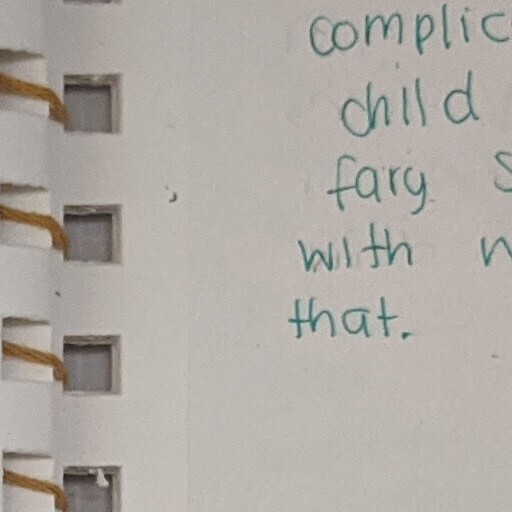 complic
child
fary s
with n
that.